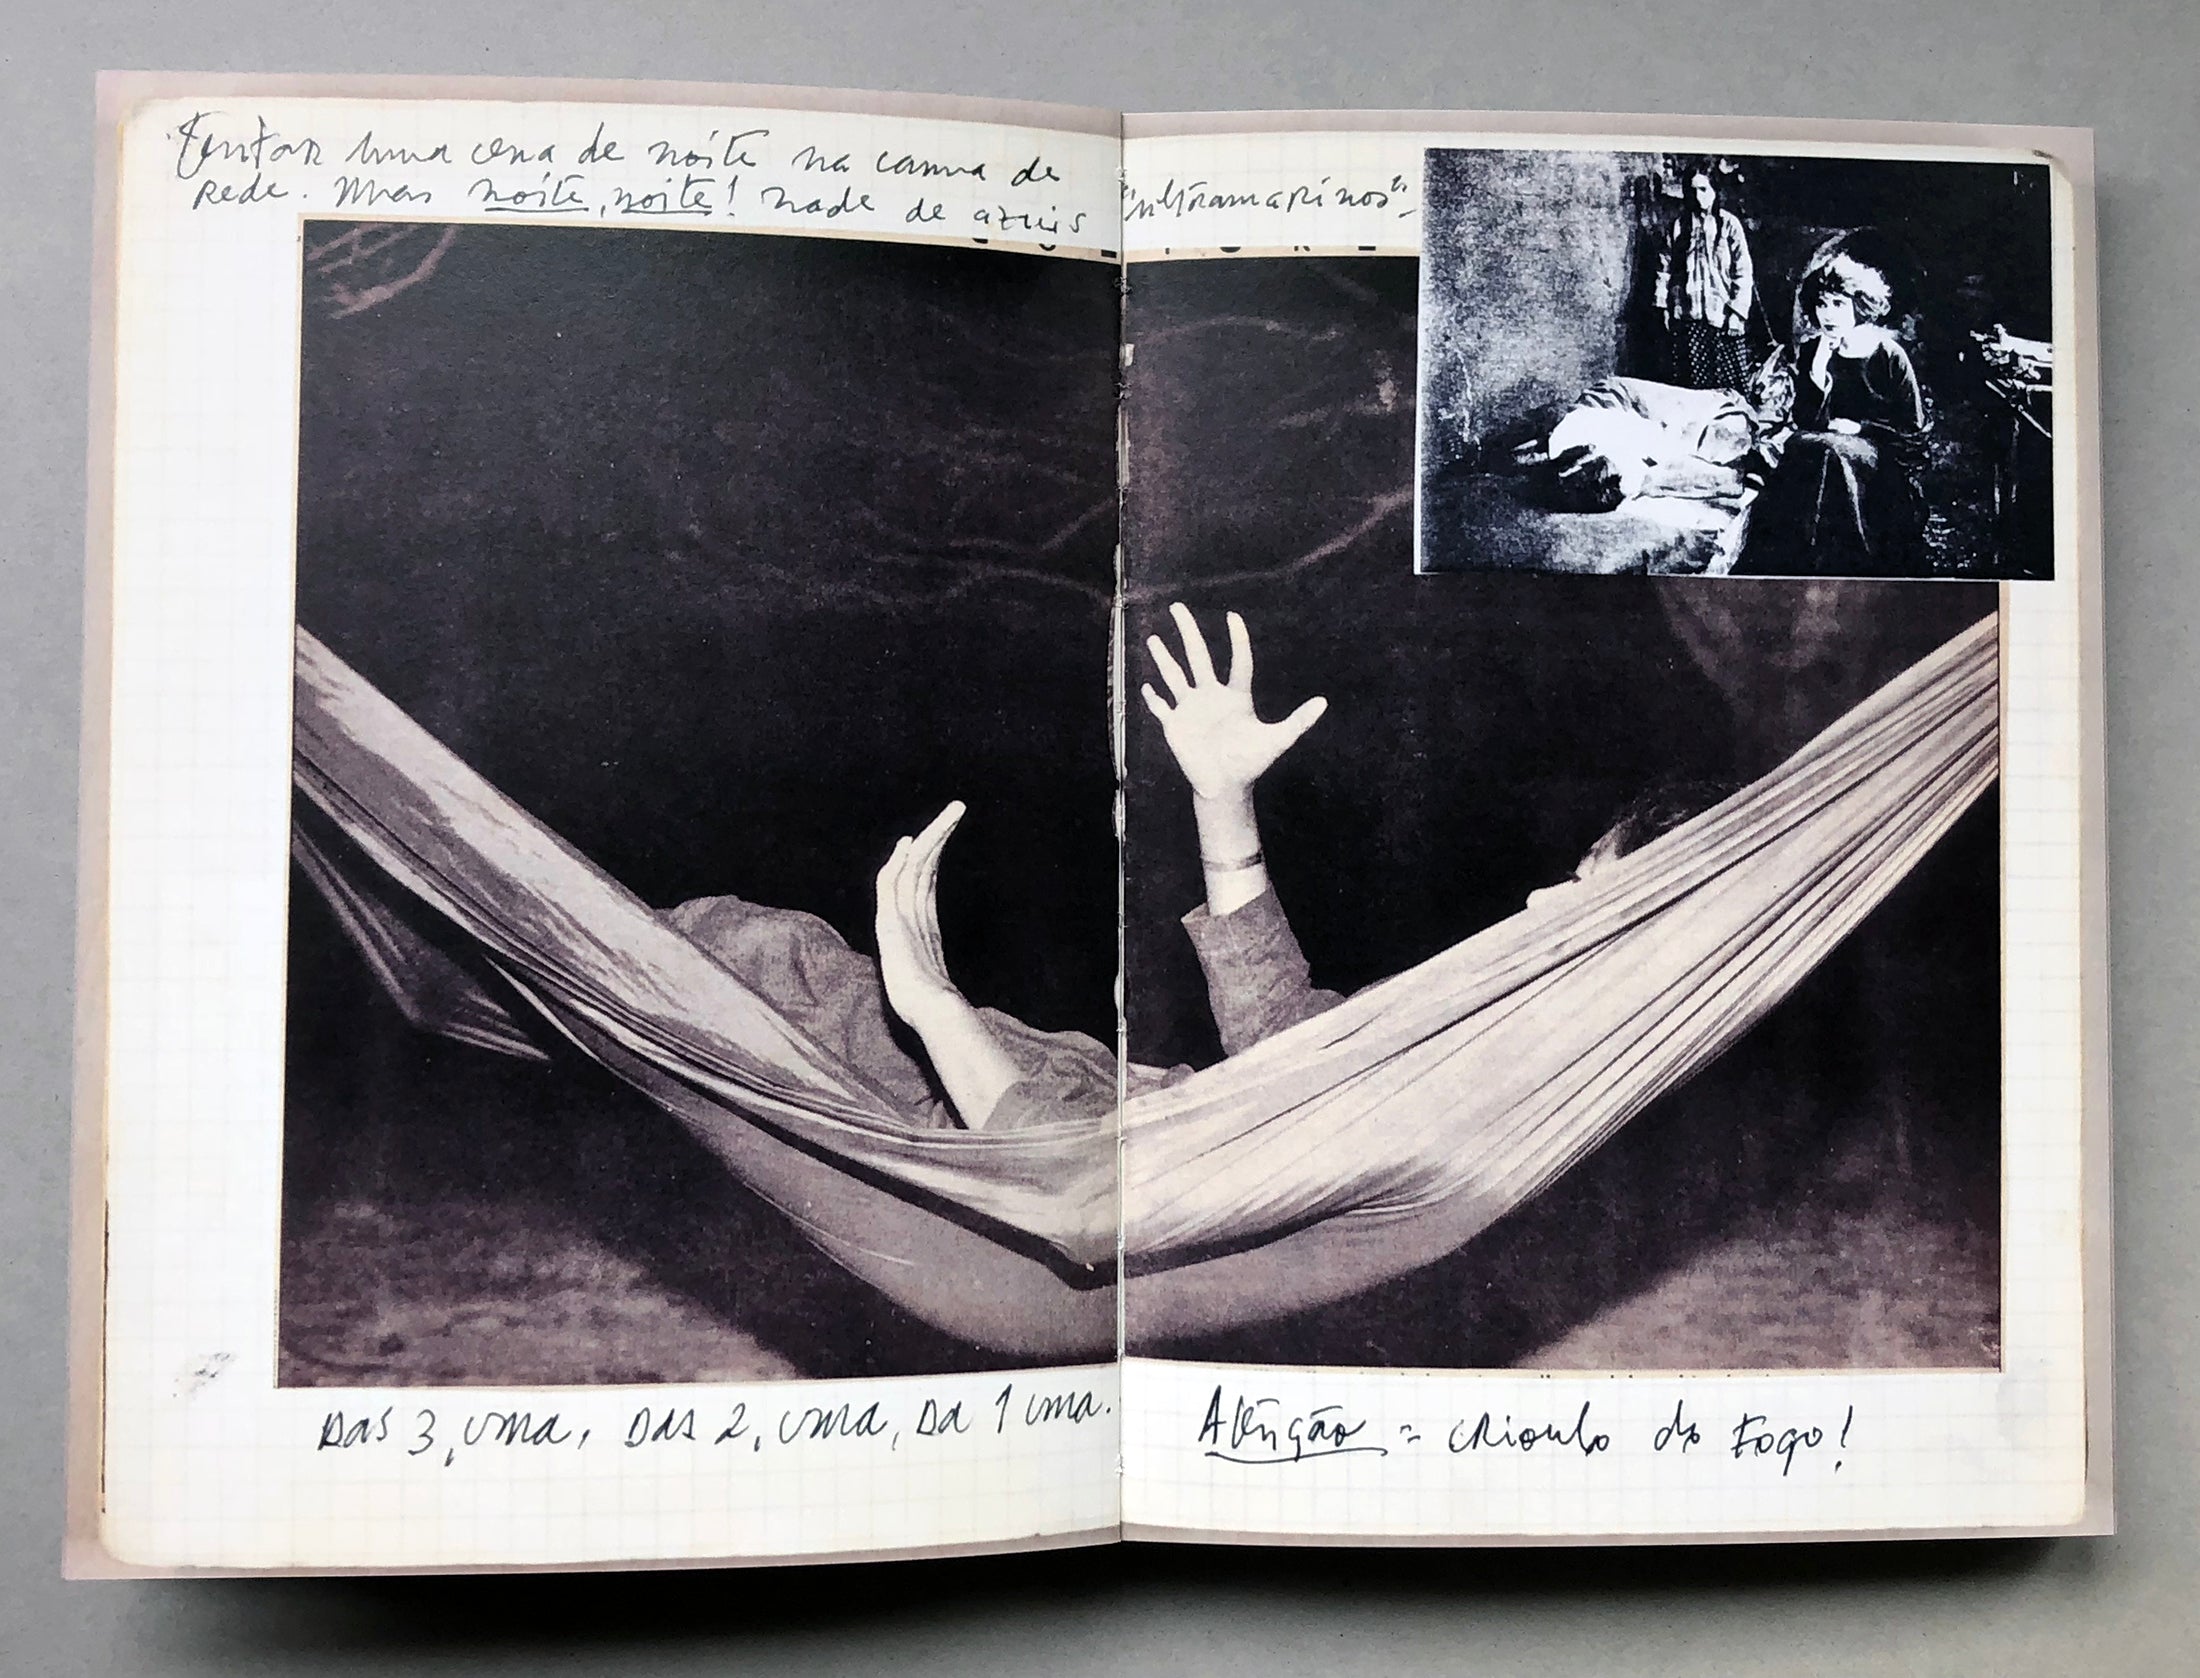 Tentar uma cena de noite na cama de
rede. Mas noite, noite! nada de azuis "ultramarinos"-
DAS 3, uma, DAS 2, uma, DA 1 uma.
Atenção = CRioulo do Fogo!